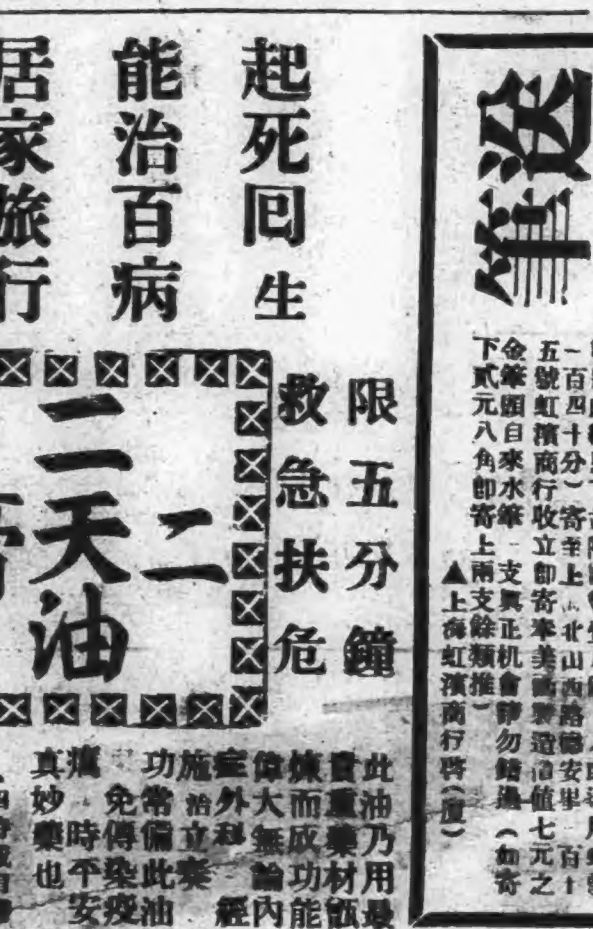 送筆
一百四十分）寄至上 北山西路德安里一百十
五號虹濱商行收立即寄奉美國製造 值七元之
金筆頭自來水筆一支眞正机會請勿錯過（如寄
下貳元八角即寄上兩支餘類推）
▲上海虹濱商行啓（廈）
起死回生
能治百病
居家旅行
限五分鐘
救急扶危
二
二天油
此油乃用最
貴重藥材
煉而成功能
偉大無論內
症外科 經
施治立奏
功常備此油
免傳染疫
癘 時平安
真妙藥也